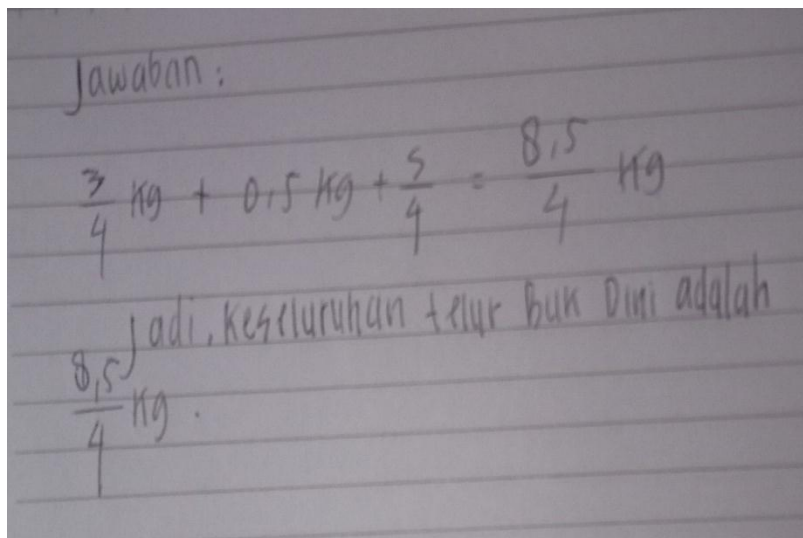 Jawaban:
3/4 Kg + 0,5 Kg + 5/4 = 8,5/4 Kg
Jadi, Keseluruhan telur Buk Dini adalah
8,5/4 Kg.